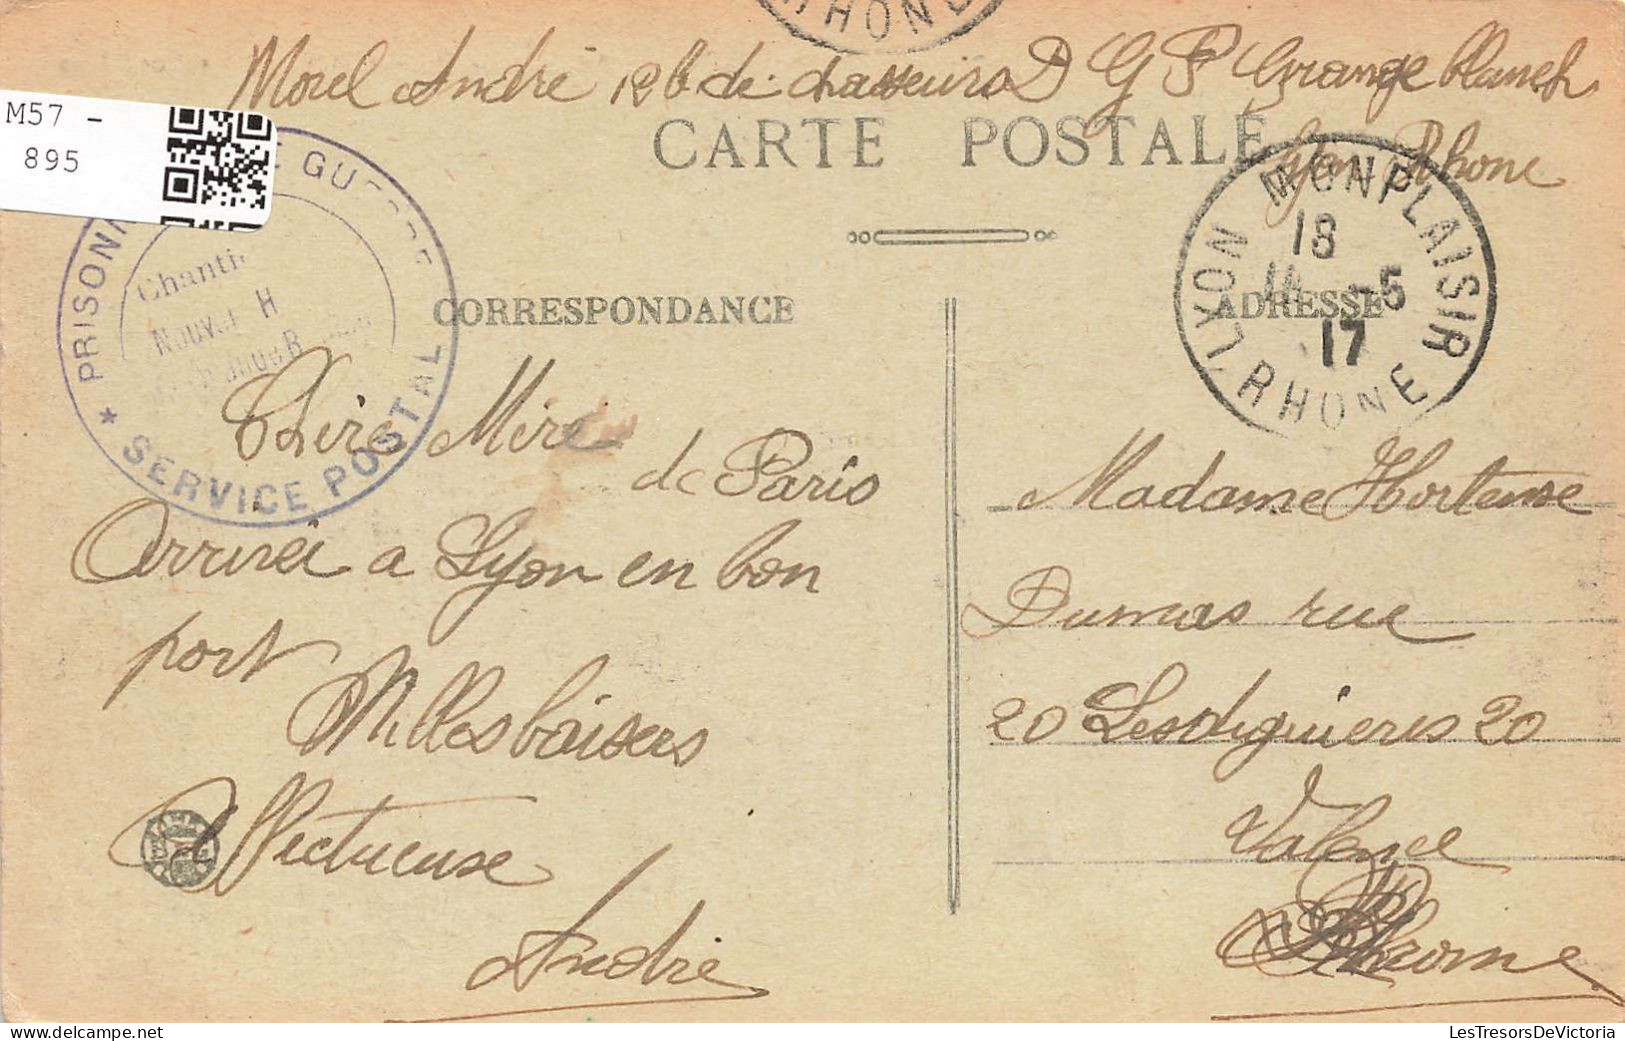 RHONE
Morel André 12 b de chasseurs D G P Grange Blanch
Lyon Rhone
M57 -
895
CARTE POSTALE
PRISONN GUERRE
Chanti
Nouvel H
SERVICE POSTAL
LYON MONPLAISIR
18
14 -5
17
RHONE
CORRESPONDANCE
ADRESSE
Chère Mère
de Paris
Arrivéi a Lyon en bon
port
Milles baisers
Affectueuse
André
Madame Hortense
Dumas rue
20 Lesdiguieres 20
Valence
Drome
LesTresorsDeVictoria